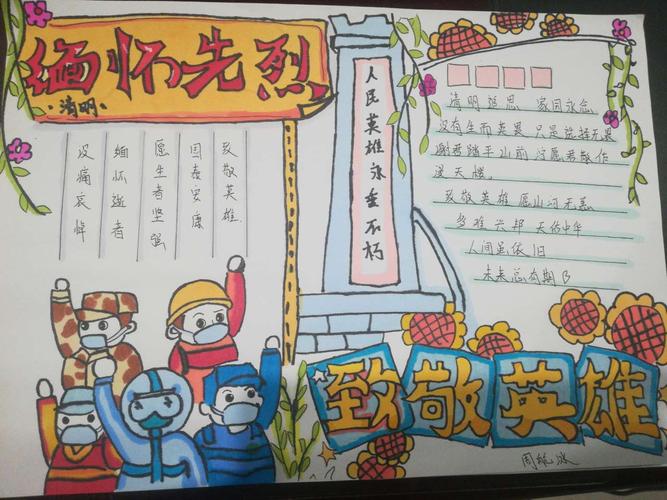 缅怀先烈
·清明·
致敬英雄
国泰安康
愿生者坚强
缅怀逝者
沉痛哀悼
人民英雄永垂不朽
清明追思 家国永念
没有生而英勇 只是选择无畏
谢君踏平山前 愿君散作
漫天樱
致敬英雄 愿山河无恙
多难兴邦 天佑中华
人间虽依旧
未来总有期日
致敬英雄